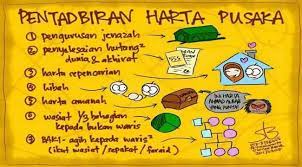 PENTADBIRAN HARTA PUSAKA
1 pengurusan jenazah
2 penyelesaian hutang²
dunia & akhirat
3 harta sepencarian
4 hibah
5 harta amanah
6 wasiat 1/3 bahagian
kepada bukan waris
7 BAKI - agih kepada waris²
(ikut wasiat / sepakat / faraid)
INI HARTA